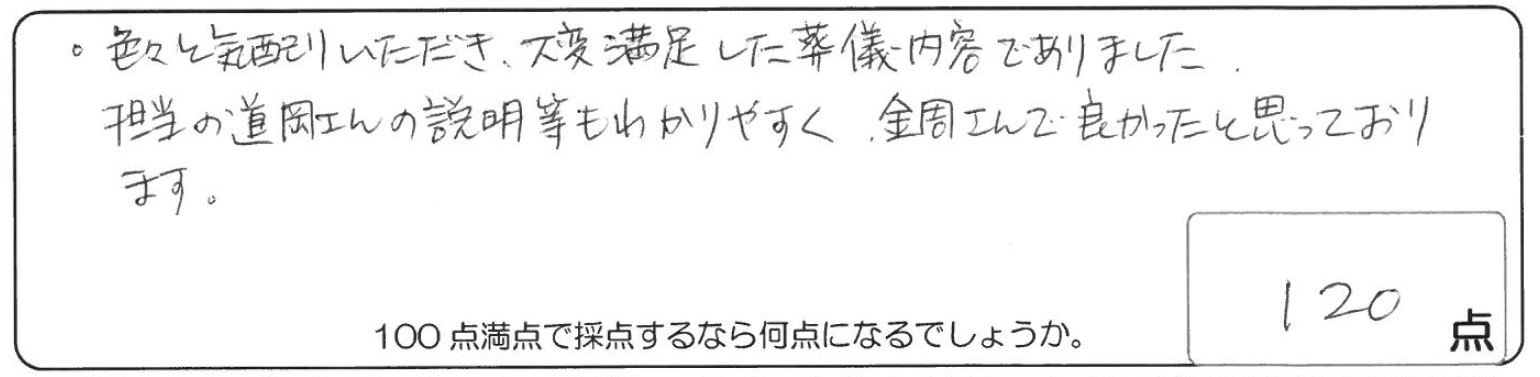 。色々と気配りいただき、大変満足した葬儀内容でありました.
担当の道岡さんの説明等もわかりやすく、金周さんで良かったと思っており
ます。
120 点
100点満点で採点するなら何点になるでしょうか。